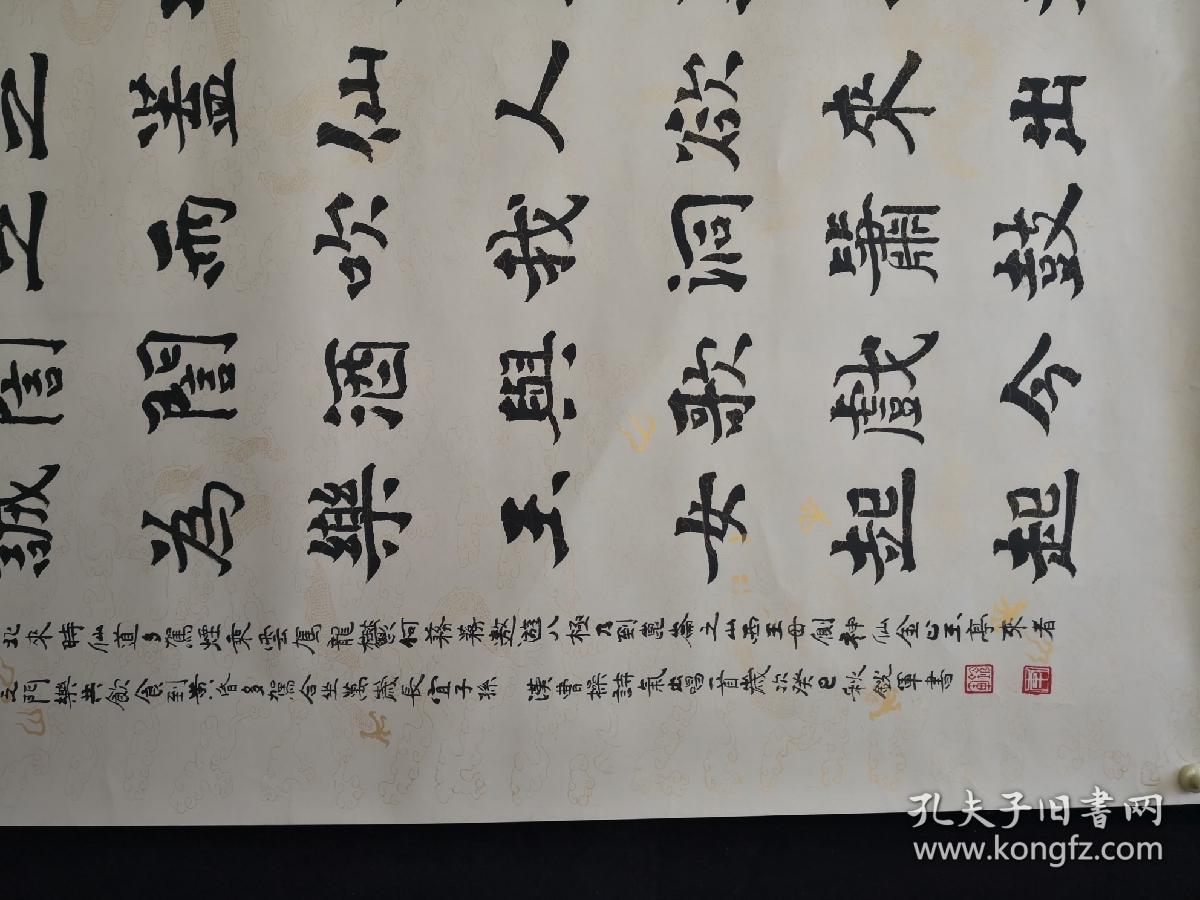 之蓋仙人欲來出
之雨吹我洞簫鼓
誾誾酒與歌戲今
誠為樂玉女起起
北來時仙道多駕煙乘雲駕龍鬱何蓩蓩遨遊八極乃到崑崙之山西王母側神仙金止玉亭來者
之門樂共飲食到黃昏多駕合坐萬歲長宜子孫 漢曹操詩氣出唱一首歲次癸巳秋銳軍書
孔夫子旧書网
www.kongfz.com